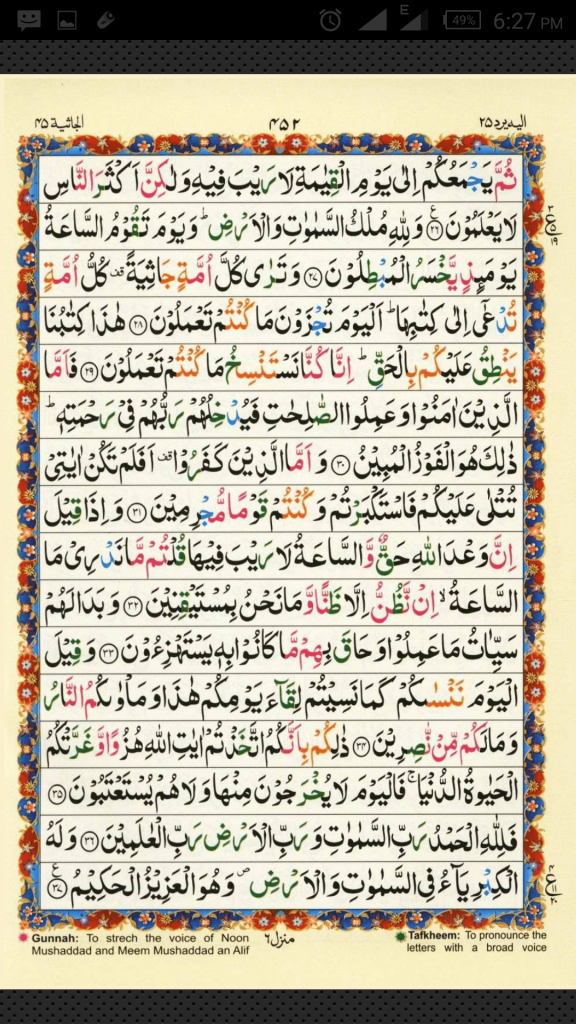 E
49%
6:27 PM
اليه يرد ٢٥
٤٥٢
الجاثية ٤٥
ثُمَّ يَجْمَعُكُمْ اِلٰى يَوْمِ الْقِيٰمَةِ لَا رَيْبَ فِيْهِ وَلٰكِنَّ اَكْثَرَ النَّاسِ
لَا يَعْلَمُوْنَ ﴿٢٦﴾ ع وَلِلّٰهِ مُلْكُ السَّمٰوٰتِ وَالْاَرْضِ ؕ وَيَوْمَ تَقُوْمُ السَّاعَةُ
يَوْمَىِٕذٍ يَّخْسَرُ الْمُبْطِلُوْنَ ﴿٢٧﴾ وَتَرٰى كُلَّ اُمَّةٍ جَاثِيَةً قف كُلُّ اُمَّةٍ
تُدْعٰۤى اِلٰى كِتٰبِهَا ؕ اَلْيَوْمَ تُجْزَوْنَ مَا كُنْتُمْ تَعْمَلُوْنَ ﴿٢٨﴾ هٰذَا كِتٰبُنَا
يَنْطِقُ عَلَيْكُمْ بِالْحَقِّ ؕ اِنَّا كُنَّا نَسْتَنْسِخُ مَا كُنْتُمْ تَعْمَلُوْنَ ﴿٢٩﴾ فَاَمَّا
الَّذِيْنَ اٰمَنُوْا وَعَمِلُوا الصّٰلِحٰتِ فَيُدْخِلُهُمْ رَبُّهُمْ فِيْ رَحْمَتِهٖ ؕ
ذٰلِكَ هُوَ الْفَوْزُ الْمُبِيْنُ ﴿٣٠﴾ وَاَمَّا الَّذِيْنَ كَفَرُوْا قف اَفَلَمْ تَكُنْ اٰيٰتِيْ
تُتْلٰى عَلَيْكُمْ فَاسْتَكْبَرْتُمْ وَكُنْتُمْ قَوْمًا مُّجْرِمِيْنَ ﴿٣١﴾ وَاِذَا قِيْلَ
اِنَّ وَعْدَ اللّٰهِ حَقٌّ وَّالسَّاعَةُ لَا رَيْبَ فِيْهَا قُلْتُمْ مَّا نَدْرِيْ مَا
السَّاعَةُ ۙ اِنْ نَّظُنُّ اِلَّا ظَنًّا وَّمَا نَحْنُ بِمُسْتَيْقِنِيْنَ ﴿٣٢﴾ وَبَدَا لَهُمْ
سَيِّاٰتُ مَا عَمِلُوْا وَحَاقَ بِهِمْ مَّا كَانُوْا بِهٖ يَسْتَهْزِءُوْنَ ﴿٣٣﴾ وَقِيْلَ
الْيَوْمَ نَنْسٰىكُمْ كَمَا نَسِيْتُمْ لِقَآءَ يَوْمِكُمْ هٰذَا وَمَاْوٰىكُمُ النَّارُ
وَمَا لَكُمْ مِّنْ نّٰصِرِيْنَ ﴿٣٤﴾ ذٰلِكُمْ بِاَنَّكُمُ اتَّخَذْتُمْ اٰيٰتِ اللّٰهِ هُزُوًا وَّغَرَّتْكُمُ
الْحَيٰوةُ الدُّنْيَا ۚ فَالْيَوْمَ لَا يُخْرَجُوْنَ مِنْهَا وَلَا هُمْ يُسْتَعْتَبُوْنَ ﴿٣٥﴾
فَلِلّٰهِ الْحَمْدُ رَبِّ السَّمٰوٰتِ وَرَبِّ الْاَرْضِ رَبِّ الْعٰلَمِيْنَ ﴿٣٦﴾ وَلَهُ
الْكِبْرِيَآءُ فِي السَّمٰوٰتِ وَالْاَرْضِ ص وَهُوَ الْعَزِيْزُ الْحَكِيْمُ ﴿٣٧﴾ ع
Gunnah: To strech the voice of Noon
Mushaddad and Meem Mushaddad an Alif
منزل ٦
Tafkheem: To pronounce the
letters with a broad voice